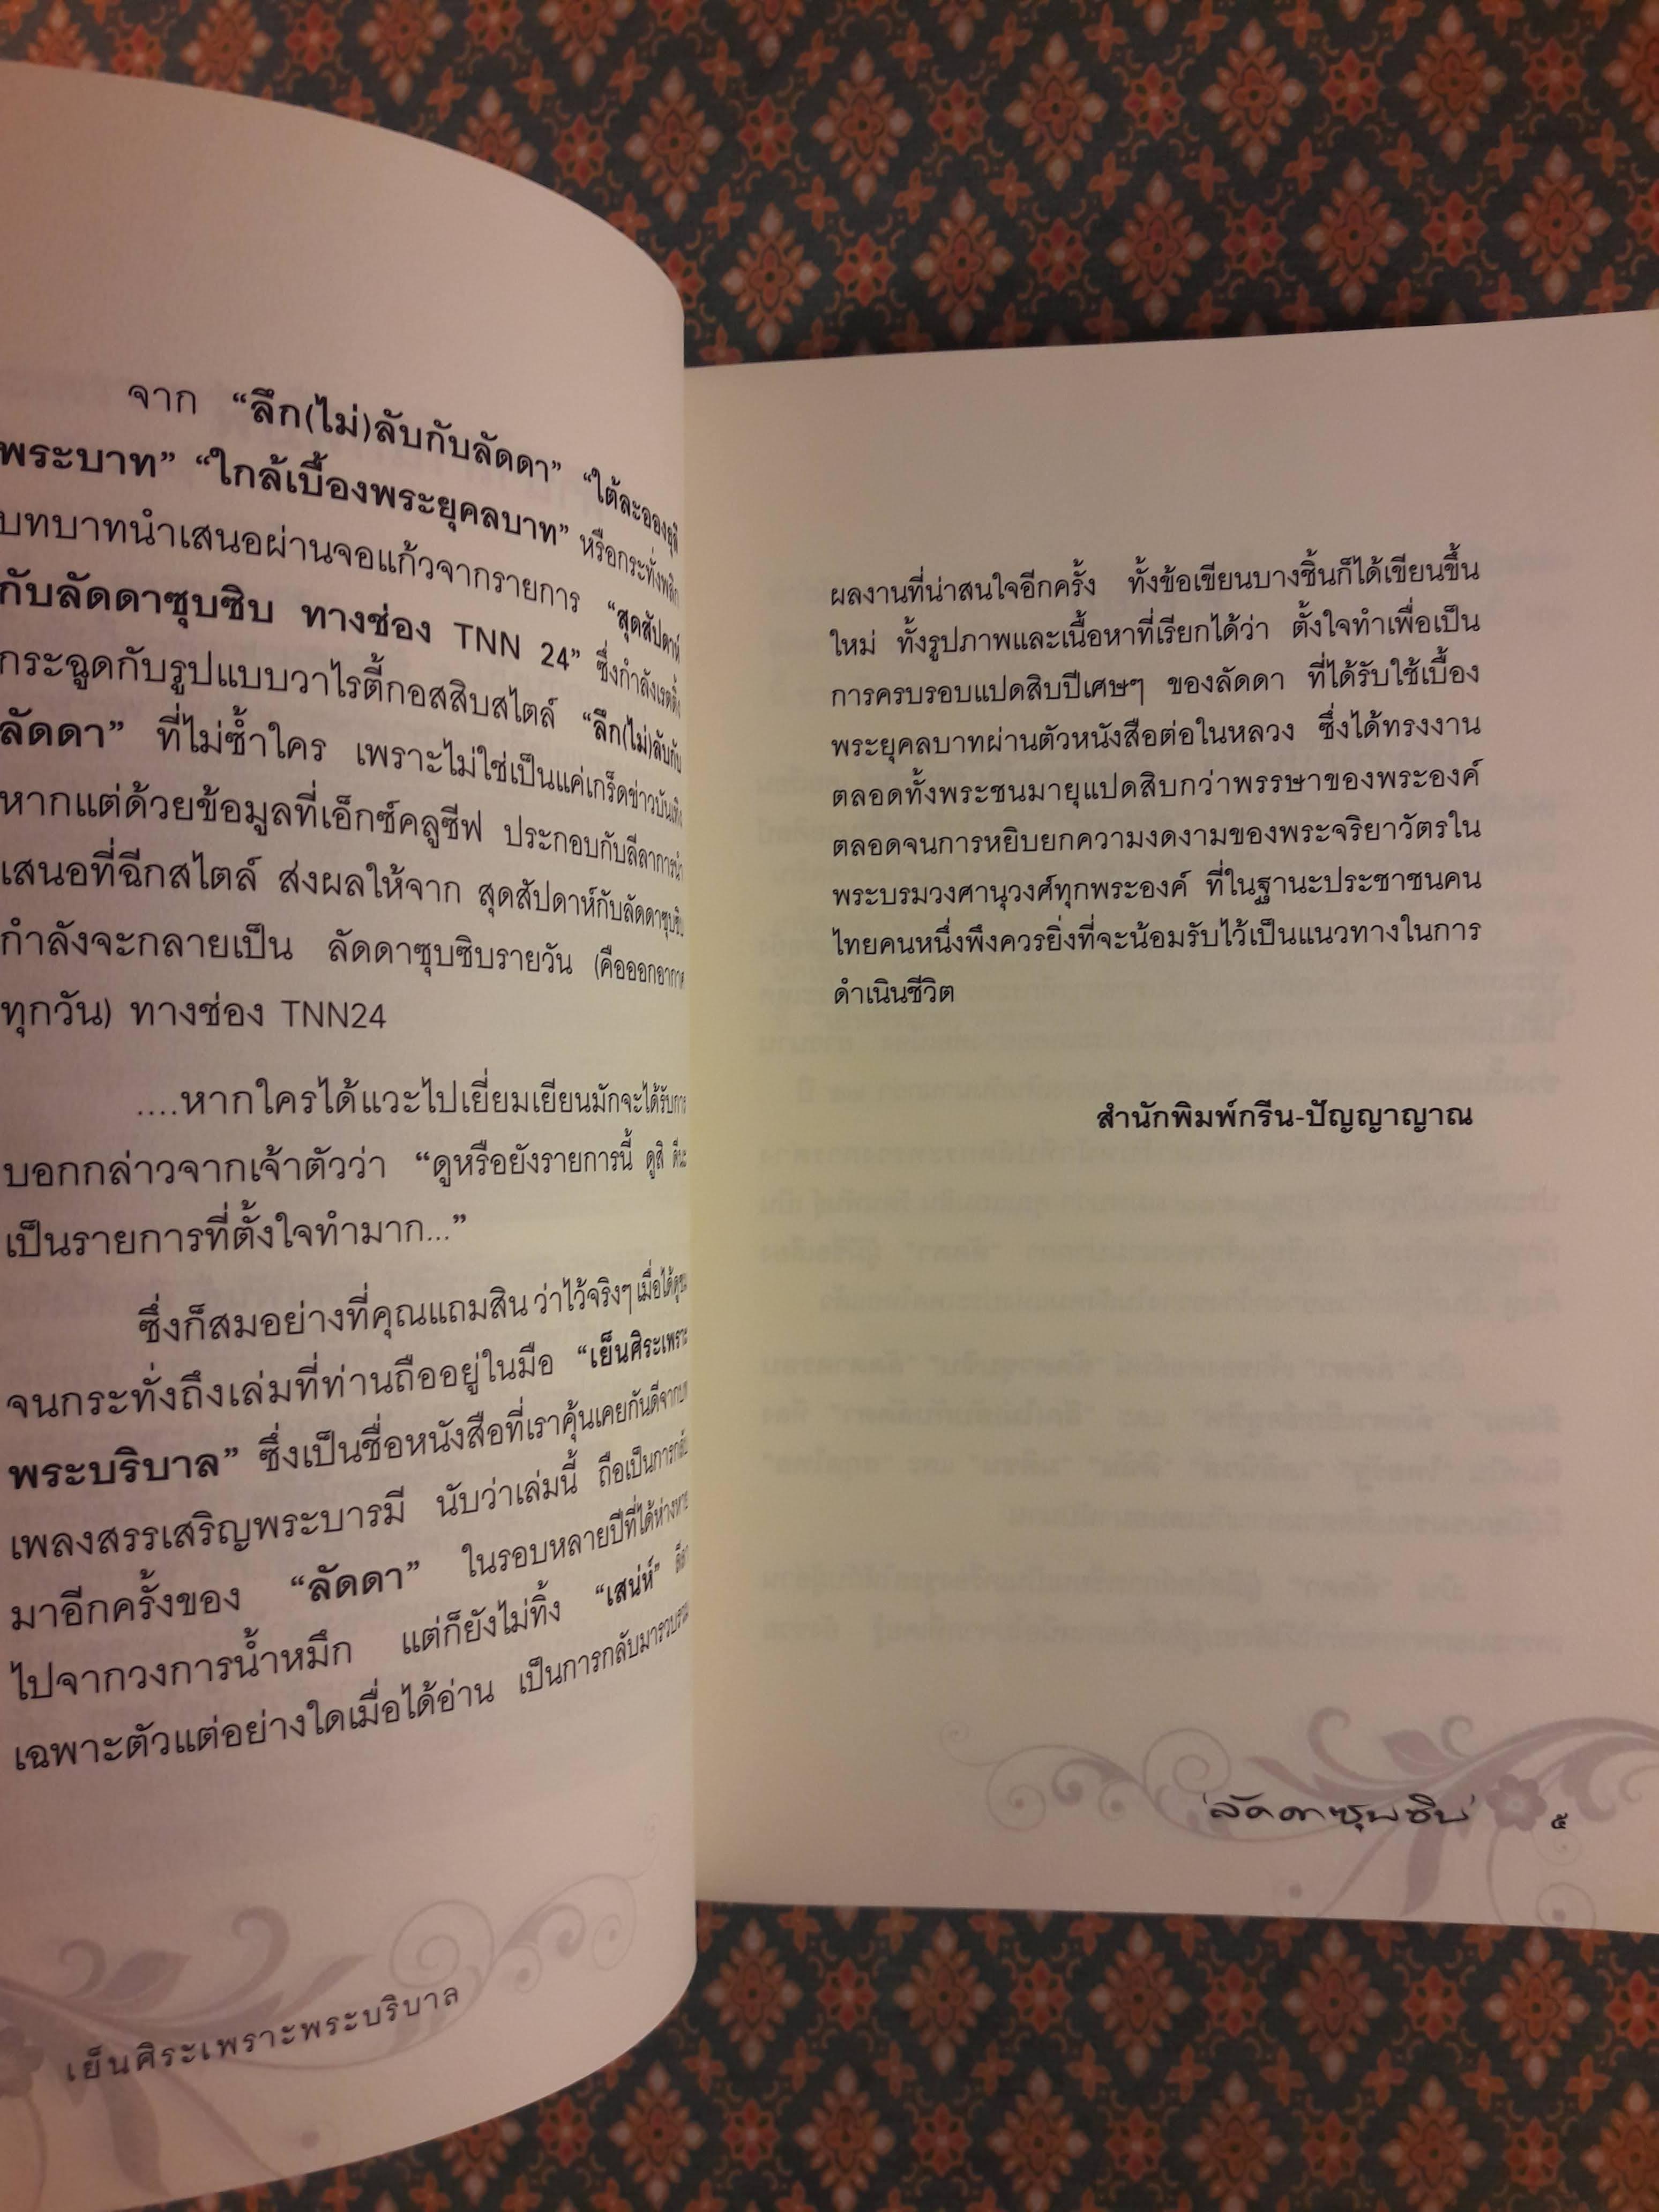 จาก “ลึก(ไม่)ลับกับลัดดา” “ใต้ละอองธุลี
พระบาท” “ใกล้เบื้องพระยุคลบาท” หรือกระทั่งพลิก
บทบาทนำเสนอผ่านจอแก้วจากรายการ “สุดสัปดาห์
กับลัดดาซุบซิบ ทางช่อง TNN 24” ซึ่งกำลังเรตติ้ง
กระฉูดกับรูปแบบวาไรตี้กอสสิบสไตล์ “ลึก(ไม่)ลับกับ
ลัดดา” ที่ไม่ซ้ำใคร เพราะไม่ใช่เป็นแค่เกร็ดข่าวบันเทิง
หากแต่ด้วยข้อมูลที่เอ็กซ์คลูซีฟ ประกอบกับลีลาการนำ
เสนอที่ฉีกสไตล์ ส่งผลให้จาก สุดสัปดาห์กับลัดดาซุบซิบ
กำลังจะกลายเป็น ลัดดาซุบซิบรายวัน (คือออกอากาศ
ทุกวัน) ทางช่อง TNN24
....หากใครได้แวะไปเยี่ยมเยียนมักจะได้รับการ
บอกกล่าวจากเจ้าตัวว่า “ดูหรือยังรายการนี้ ดูสิ
เป็นรายการที่ตั้งใจทำมาก...”
ซึ่งก็สมอย่างที่คุณแถมสิน ว่าไว้จริงๆ เมื่อได้ดูชม
จนกระทั่งถึงเล่มที่ท่านถืออยู่ในมือ “เย็นศิระเพราะ
พระบริบาล” ซึ่งเป็นชื่อหนังสือที่เราคุ้นเคยกันดีจากบท
เพลงสรรเสริญพระบารมี นับว่าเล่มนี้ ถือเป็นการกลับ
มาอีกครั้งของ “ลัดดา” ในรอบหลายปีที่ได้ห่างหาย
ไปจากวงการน้ำหมึก แต่ก็ยังไม่ทิ้ง “เสน่ห์”
เฉพาะตัวแต่อย่างใดเมื่อได้อ่าน เป็นการกลับมารวบรวม
เย็นศิระเพราะพระบริบาล
ผลงานที่น่าสนใจอีกครั้ง ทั้งข้อเขียนบางชิ้นก็ได้เขียนขึ้น
ใหม่ ทั้งรูปภาพและเนื้อหาที่เรียกได้ว่า ตั้งใจทำเพื่อเป็น
การครบรอบแปดสิบปีเศษๆ ของลัดดา ที่ได้รับใช้เบื้อง
พระยุคลบาทผ่านตัวหนังสือต่อในหลวง ซึ่งได้ทรงงาน
ตลอดทั้งพระชนมายุแปดสิบกว่าพรรษาของพระองค์
ตลอดจนการหยิบยกความงดงามของพระจริยาวัตรใน
พระบรมวงศานุวงศ์ทุกพระองค์ ที่ในฐานะประชาชนคน
ไทยคนหนึ่งพึงควรยิ่งที่จะน้อมรับไว้เป็นแนวทางในการ
ดำเนินชีวิต
สำนักพิมพ์กรีน-ปัญญาญาณ
‘ลัดดาซุบซิบ’ ๕